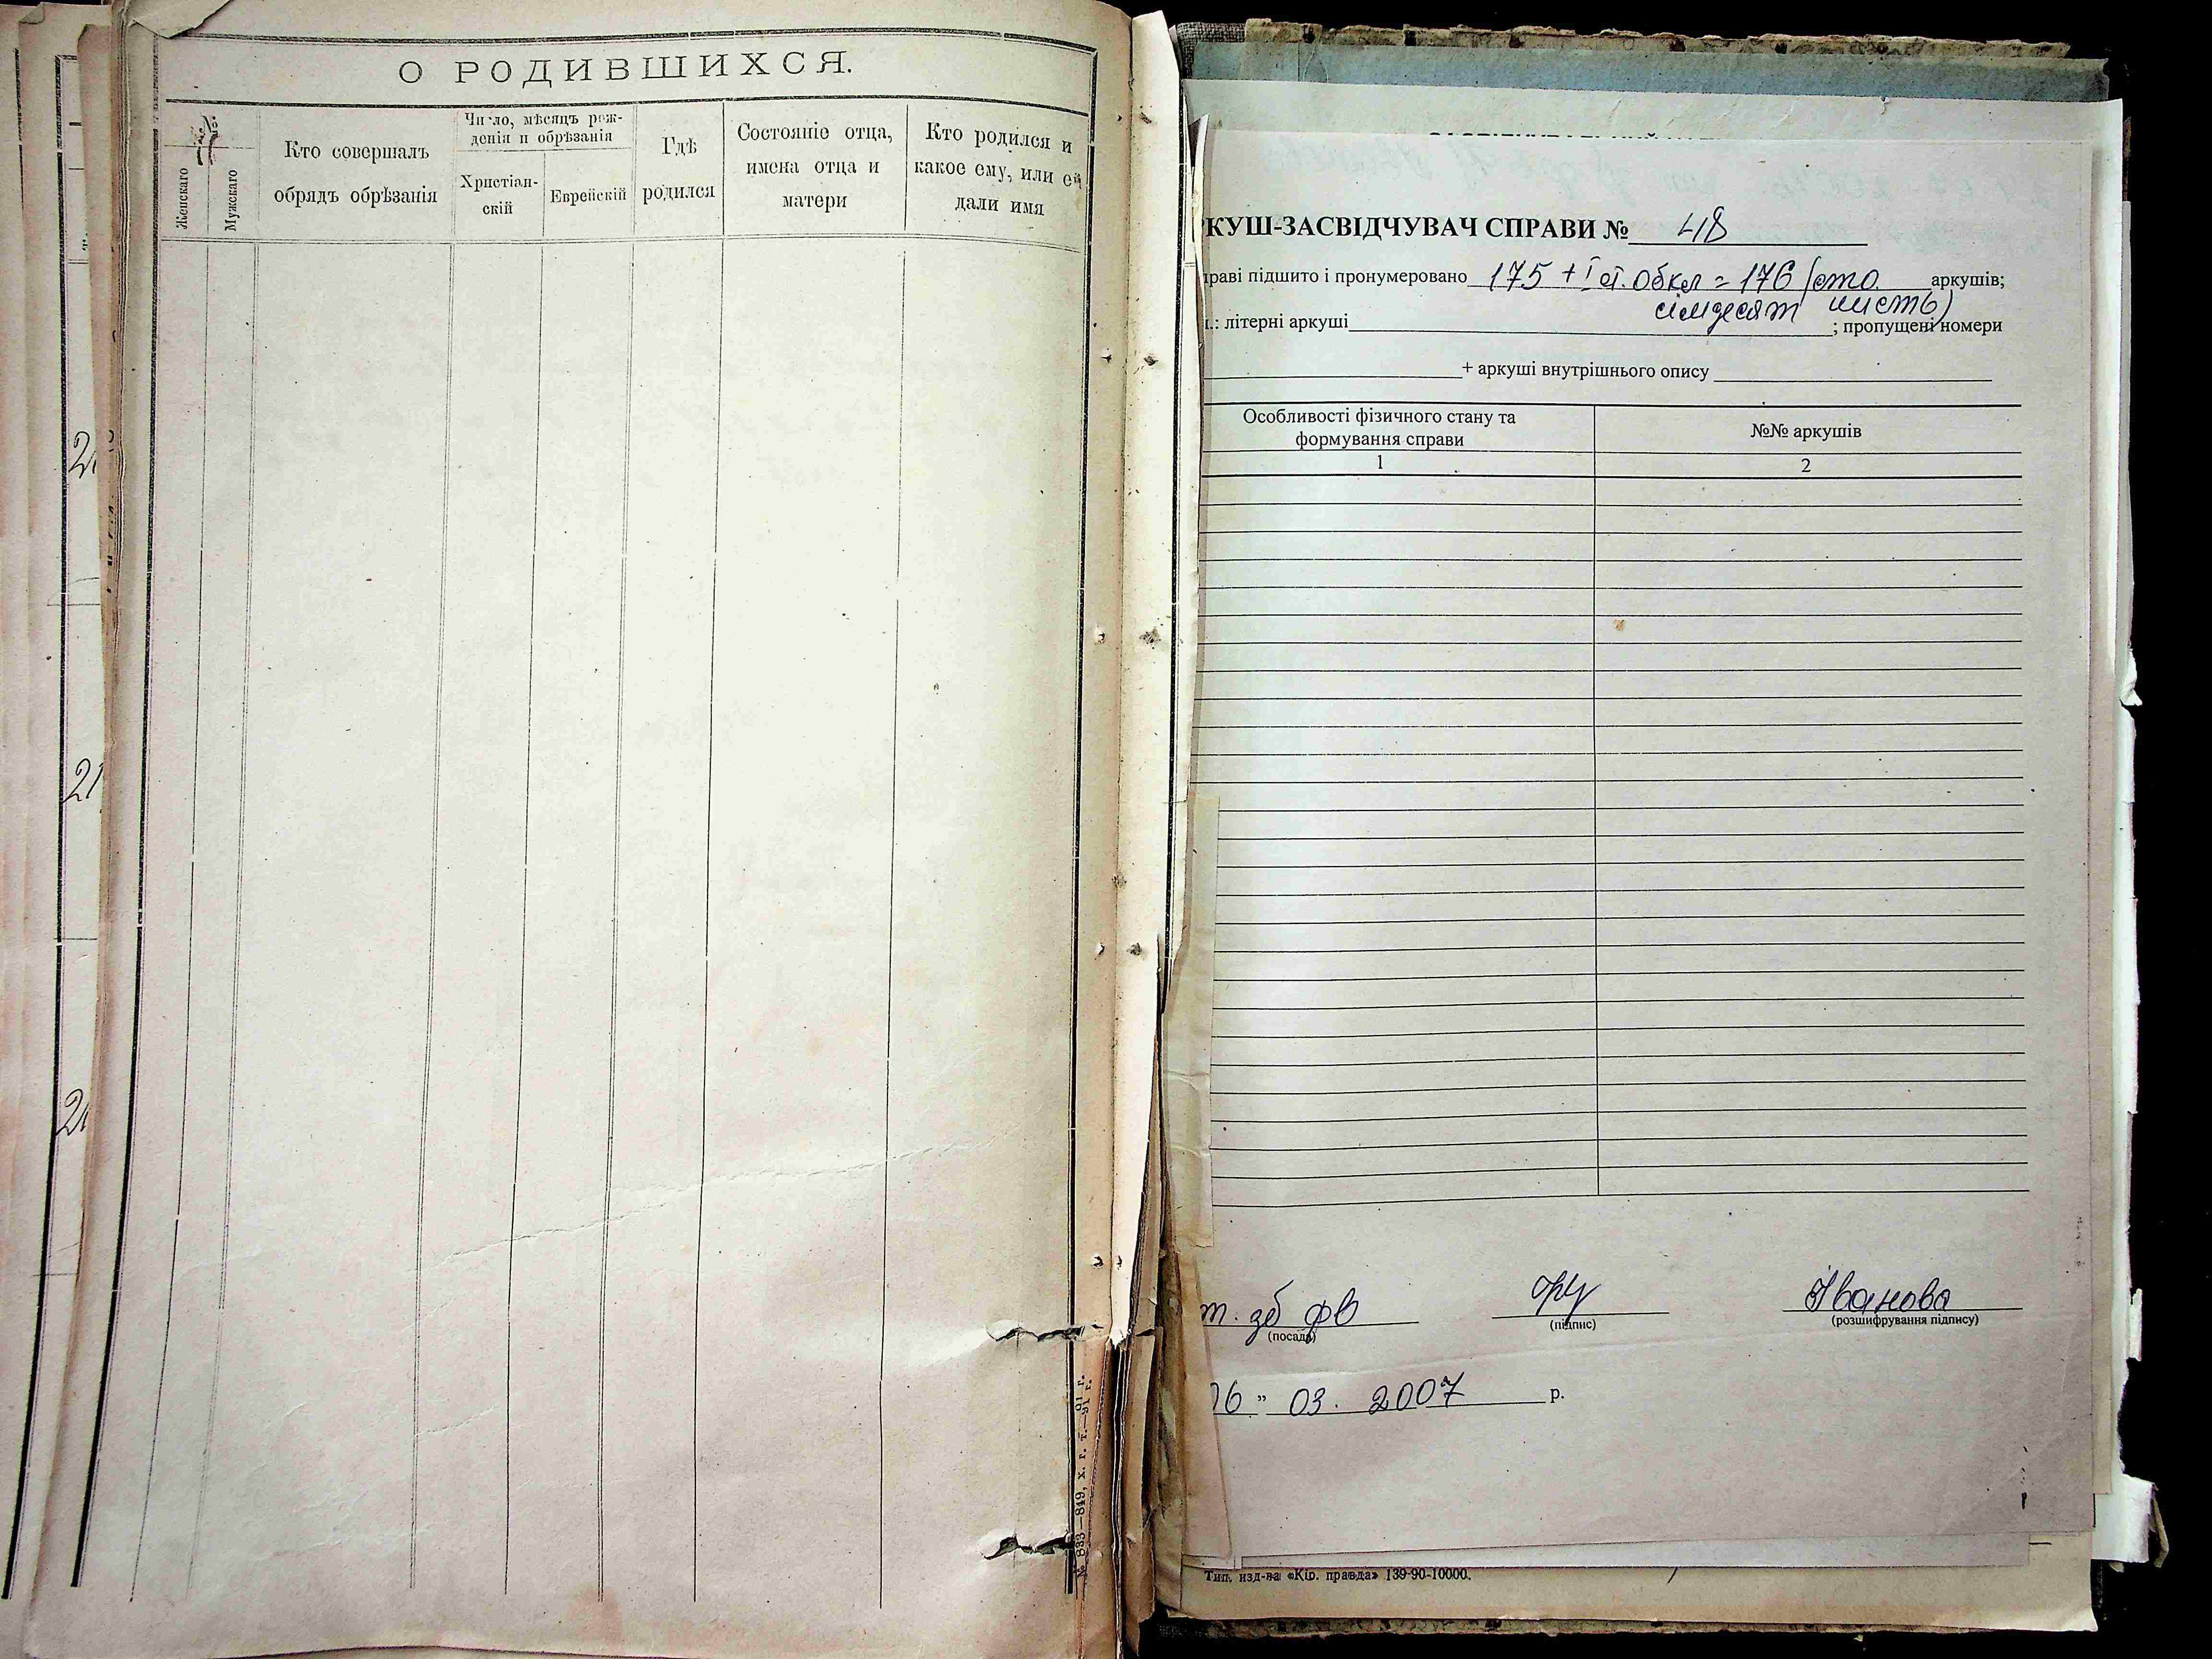 О РОДИВШИХСЯ.
Женскаго
Мужскаго
Кто совершалъ
обрядъ обрѣзанія
Число, мѣсяцъ рож-
денія и обрѣзанія
Христіан-
скій
Еврейскій
Гдѣ
родился
Состояніе отца,
имена отца и
матери
Кто родился и
какое ему, или ей
дали имя
№ 833—849, х. г. т.—91 г.
РКУШ-ЗАСВІДЧУВАЧ СПРАВИ № 418
раві підшито і пронумеровано 175 + 1 ст. обкл = 176 (сто аркушів;
сімдесят шість)
.: літерні аркуші ; пропущені номери
+ аркуші внутрішнього опису
Особливості фізичного стану та
формування справи
№№ аркушів
1
2
т. зб фв
Іванова
(посада)
(підпис)
(розшифрування підпису)
06 " 03. 2007 р.
Тип. изд-ва «Кір. правда» 139-90-10000.